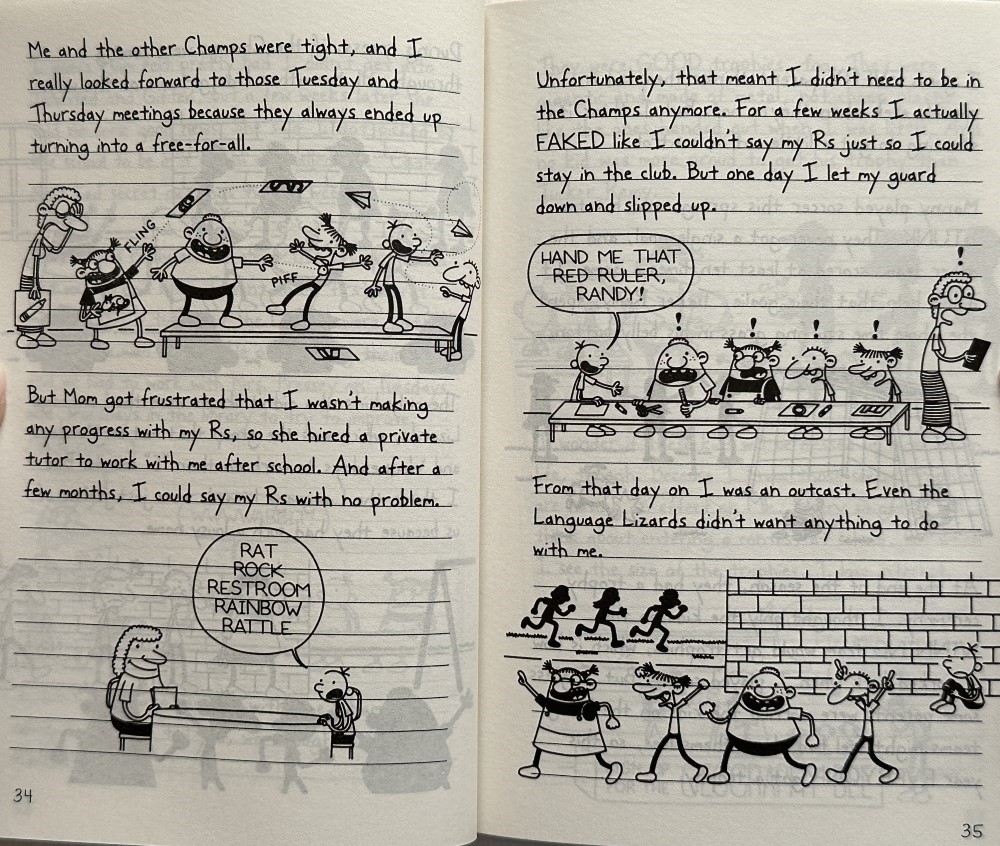 Me and the other Champs were tight, and I
really looked forward to those Tuesday and
Thursday meetings because they always ended up
turning into a free-for-all.
FLING
PIFF
But Mom got frustrated that I wasn't making
any progress with my Rs, so she hired a private
tutor to work with me after school. And after a
few months, I could say my Rs with no problem.
RAT
ROCK
RESTROOM
RAINBOW
RATTLE
34
Unfortunately, that meant I didn't need to be in
the Champs anymore. For a few weeks I actually
FAKED like I couldn't say my Rs just so I could
stay in the club. But one day I let my guard
down and slipped up.
HAND ME THAT
RED RULER,
RANDY!
!
!
!
!
!
From that day on I was an outcast. Even the
Language Lizards didn't want anything to do
with me.
35